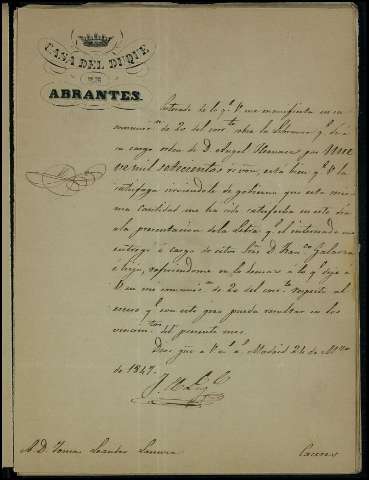 CASA DEL DUQUE
DE
ABRANTES.
Enterado de lo q.e V. me manifiesta en su
comunic.on de 20 del corr.te sobre la libranza q.e dió
a su cargo orden de D. Angel
mil setecientos rs von, está bien q.e V. la
satisfaga sirviéndole de gobierno que esta mis-
ma cantidad me ha sido satisfecha en este dia
a la presentacion de la Letra q.e el interesado me
entregó á cargo de estos Sres D. Fran.co
é hijo, refiriendome en lo demas a lo q.e dije a
V. en mi comunic.on de 20 del corr.te respecto al
q.e con este giro pueda resultar en los
vencim.tos del presente mes.
Dios gūe a V. m.s a.s Madrid 24 de
de 1847.
S. D. Tomas Leandro
Caceres